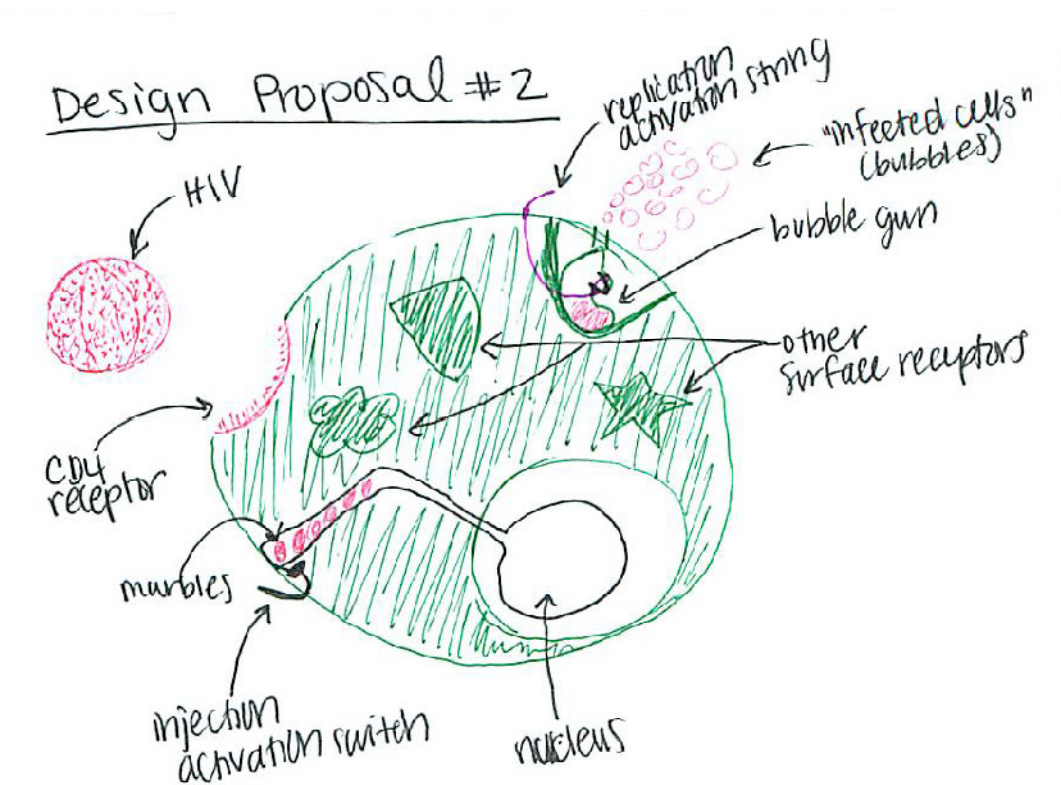 Design Proposal #2
replication
activation string
"infected cells"
(bubbles)
HIV
bubble gun
other
surface receptors
CD4
receptor
marbles
injection
activation switch
nucleus